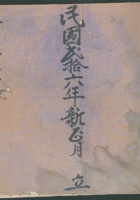 民國貳拾六年新正月 立